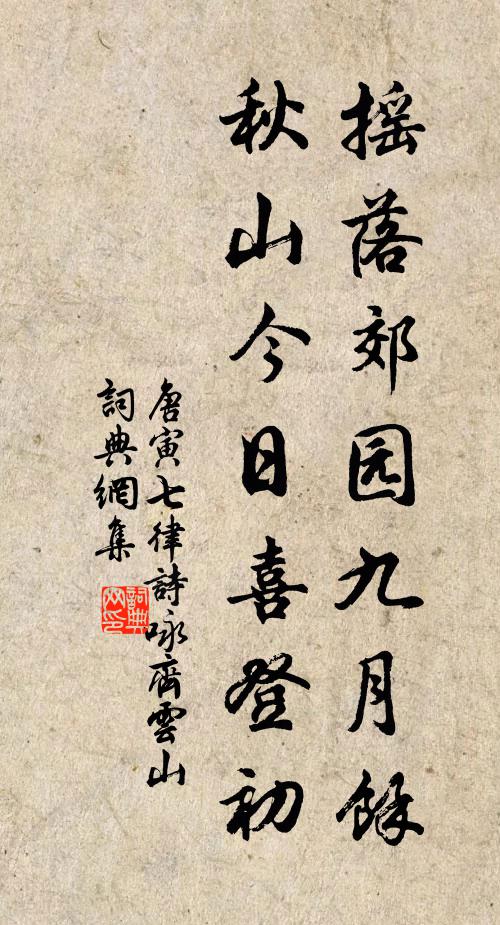 摇落郊园九月餘
秋山今日喜登初
唐寅七律詩咏齊雲山
詞典網集
詞典网印